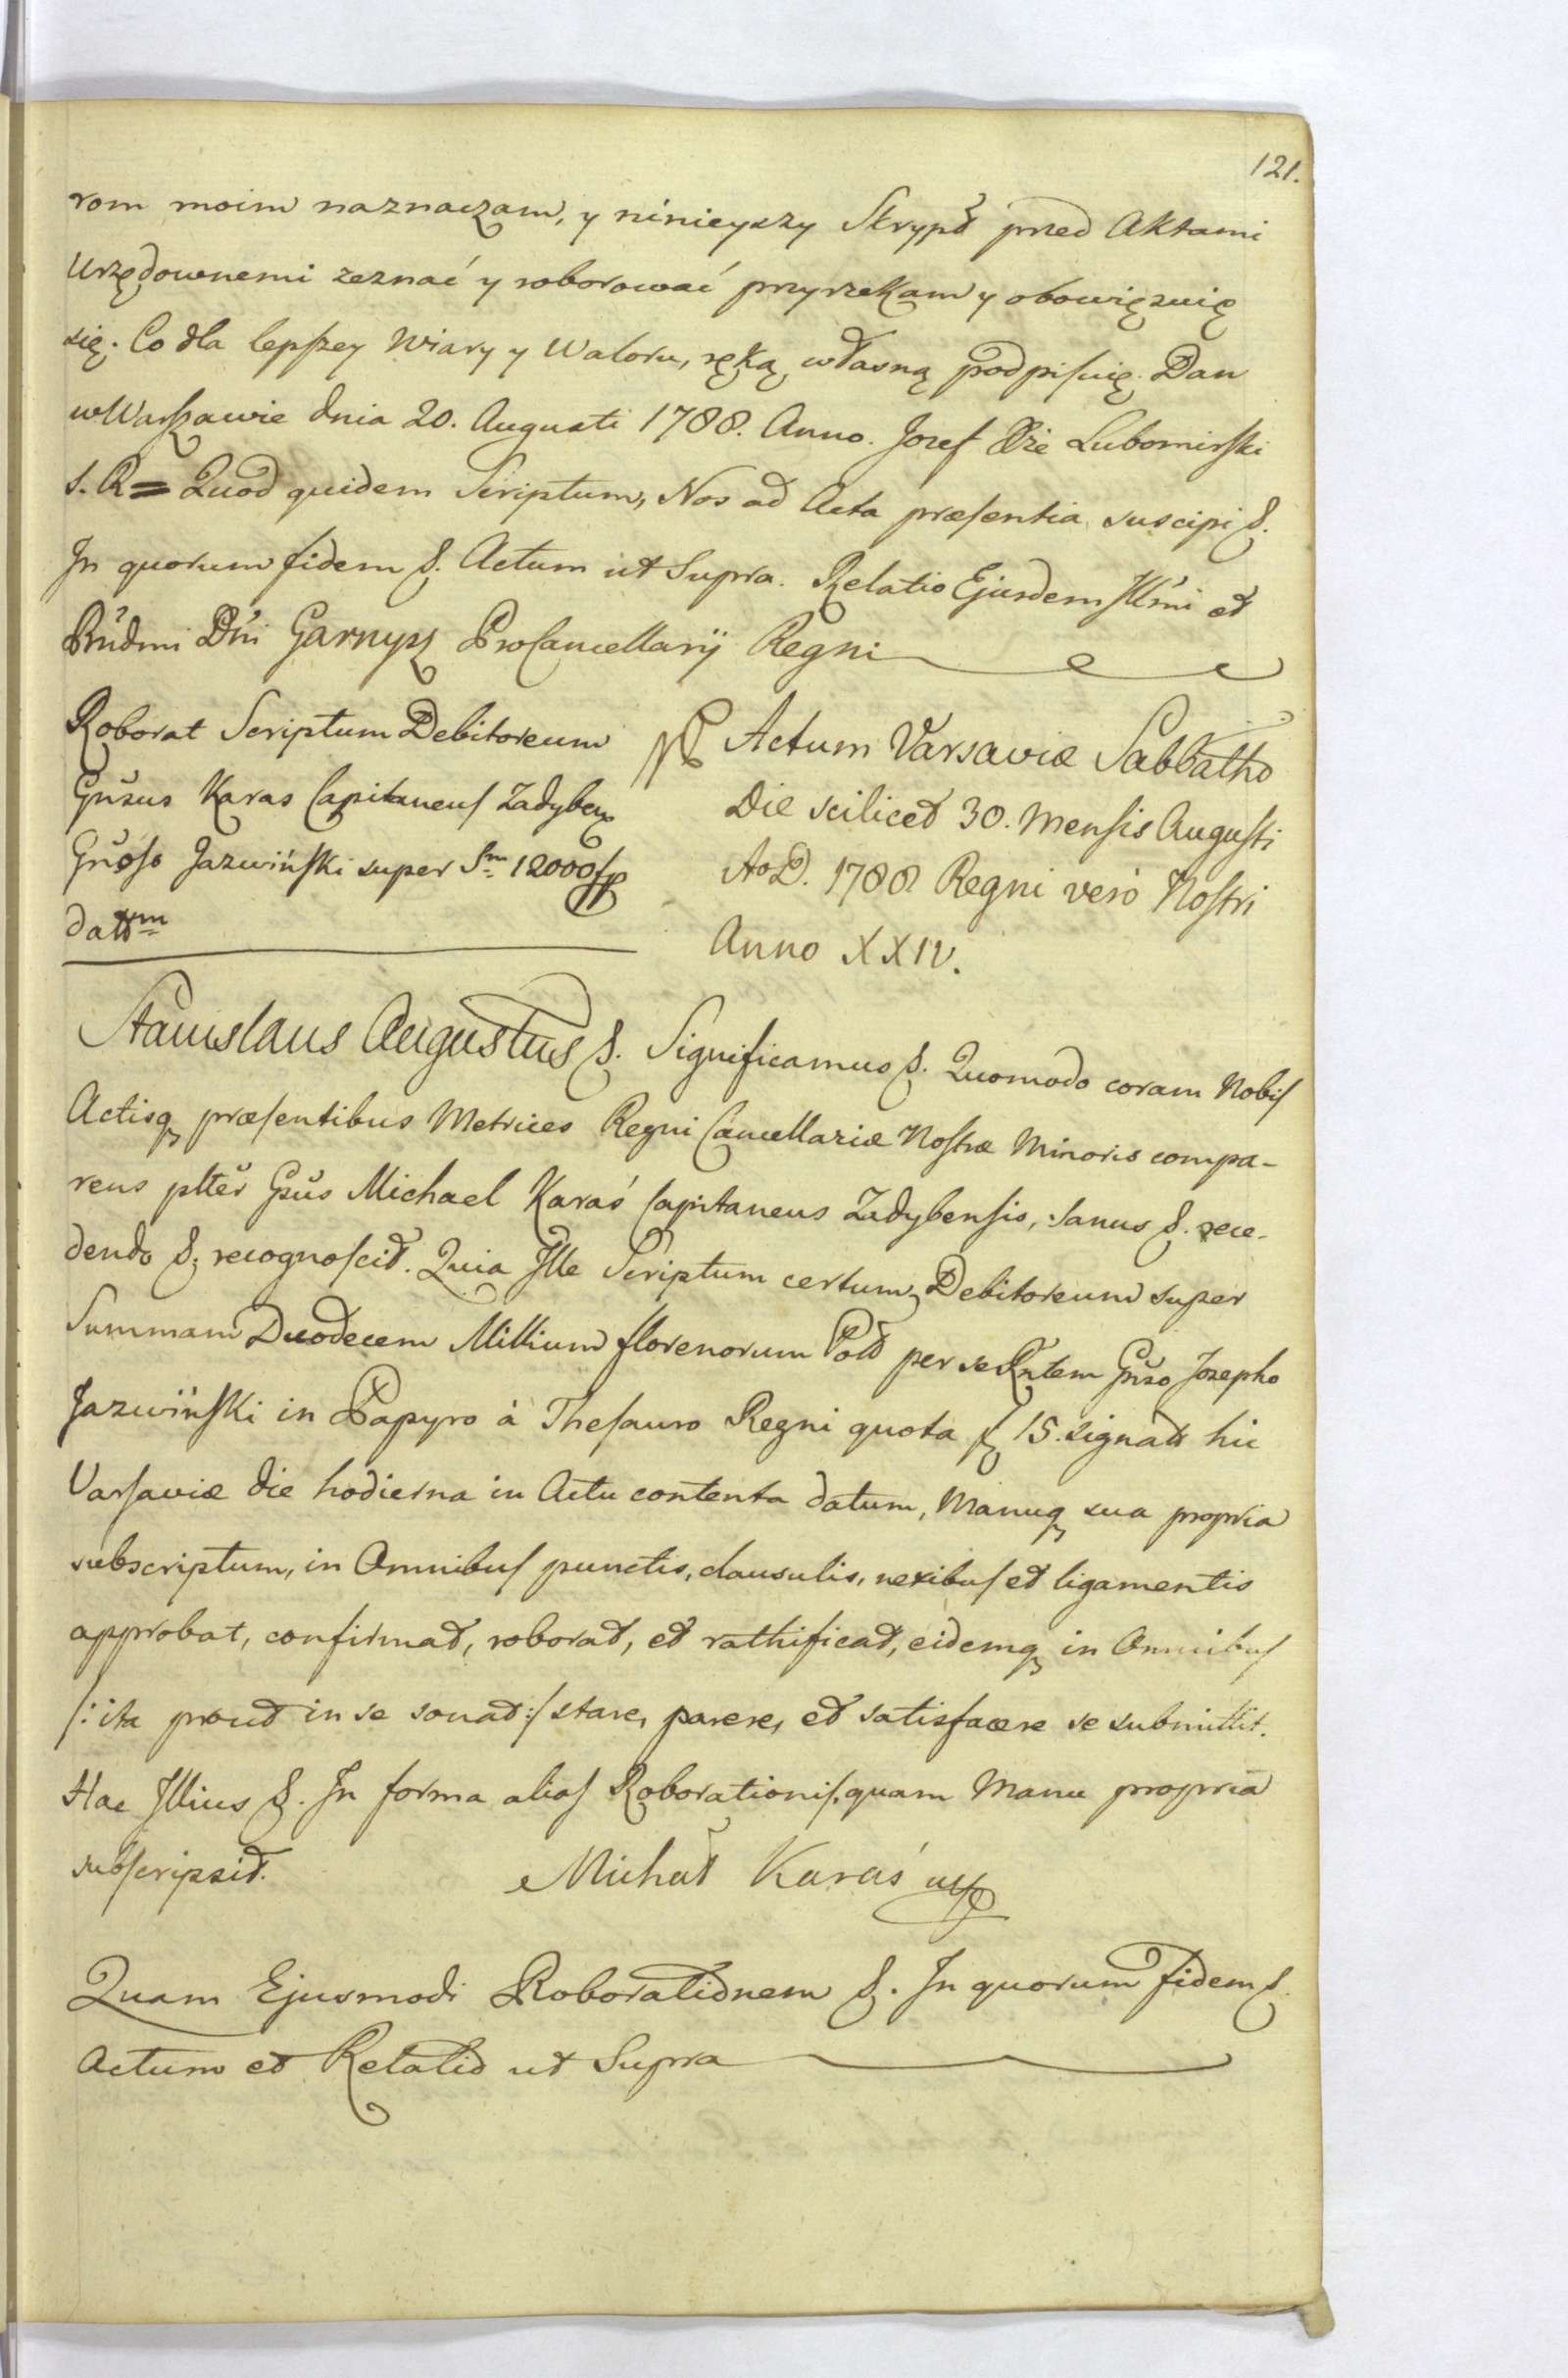 121.
rom moim naznaczam, y ninieyszy Skrypt przed Aktami
Urzędownemi zeznać y roborować przyrzekam y obowięzuię
się. Co dla lepszey Wiary y Waloru, ręką własną podpisuię. Dan
w Warszawie dnia 20. Augusti 1788. Anno. Jozef Xże Lubomirski
S.R = Quod quidem Scriptum, Nos ad Acta præsentia suscipi &.
In quorum fidem &. Actum ut Supra. Relatio Ejusdem Illmi et
Rndmi Dni Garnysz ProCancellarij Regni
Roborat Scriptum Debitoreum
Gnsus Karas Capitaneus Zadyben
Gnoso Jazwiński super Sm 12000 fp
dattm
Actum Varsaviæ Sabbatho
Die scilicet 30. Mensis Augusti
AoD. 1788 Regni verò Nostri
Anno XXIV.
Stanislaus Augustus &. Significamus &. Quomodo coram Nobis
Actisq præsentibus Metrices Regni Cancellariæ Nostræ Minoris compa-
rens plter Gsus Michael Karaś Capitaneus Zadybensis, sanus &. rece-
dendo &. recognoscit. Quia Ille Scriptum certum Debitoreum super
Summam Duodecem Millium florenorum Pold per se Rntem Gnso Josepho
Jazwiński in Papyro à Thesauro Regni quota f 15. signatt hic
Varsaviæ die hodierna in Actu contenta datum, Manuq sua propria
subscriptum, in Omnibus punctis, clausulis, nexibus et ligamentis
approbat, confirmat, roborat, et rathificat, eidemq in Omnibus
/: ita prout in se sonat :/ stare, parere, et satisfacere se submittit.
Hac Illius &. In forma alias Roborationis. quam Manu propria
subscripsit.
Michał Karaś mp
Quam Ejusmodi Roborationem &. In quorum fidem &.
Actum et Relatio ut Supra